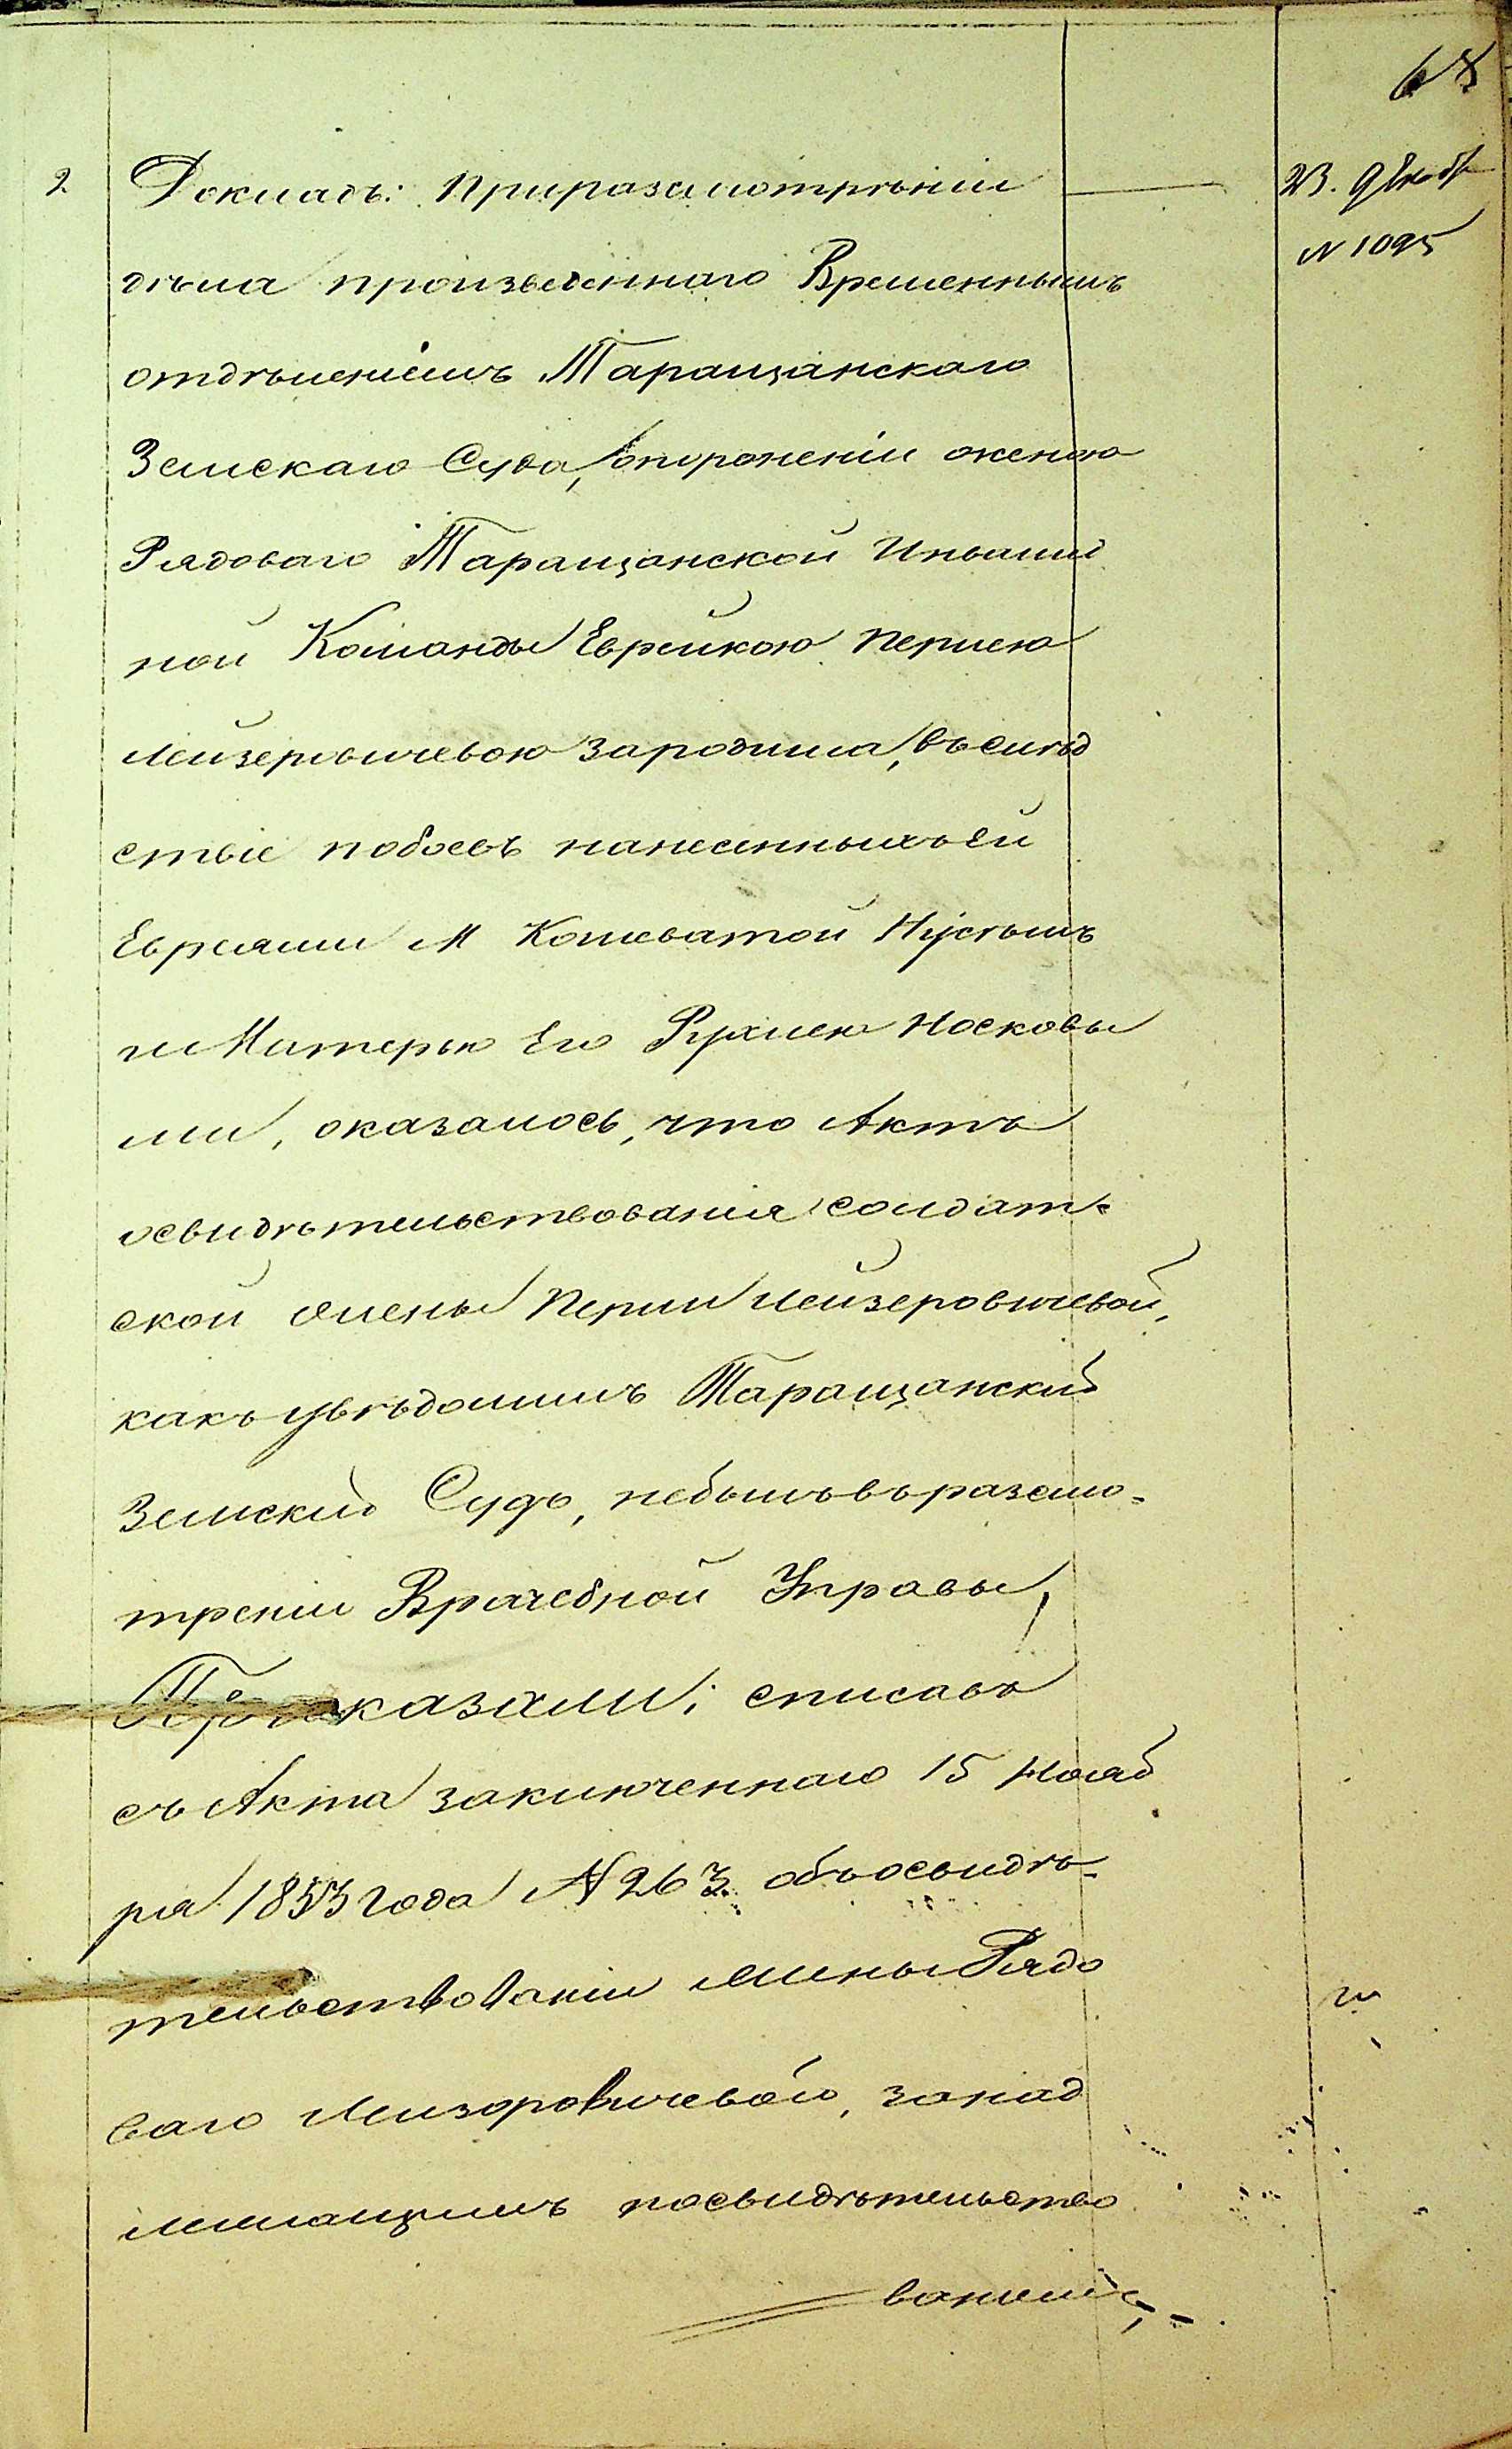 68
2 Докладъ: Приразсмотрѣніи
23. Декаб
N 1095
дѣла произведеннаго Временнымъ
отдѣленіемъ Таращанскаго
Земскаго Суда, опороненіи женою
Рядоваго Таращанской Инвалид
ной Команды Еврейкою Перлею
Лейзеровичевою зародыша, въслѣд
ствіе побоевъ нанесенныхъ ей
Евреями М Кошеватой Нусѣмъ
и Матерью Его Рухлею Носковы
ми, оказалось, что Актъ
освидѣтельствованія солдат-
ской жены Перли Лейзеровичевой,
какъ увѣдомилъ Таращанский
Земский Судъ, небылъ въ разсмо-
треніи Врачебной Управы,
Приказали: списавъ
съ Акта заключеннаго 15 Нояб
ря 1853 года N 263 объ освидѣ-
тельствованіи жены Рядо
ваго Лейзоровичевой, занад
лежащимъ посвидѣтельство
ваніемъ,